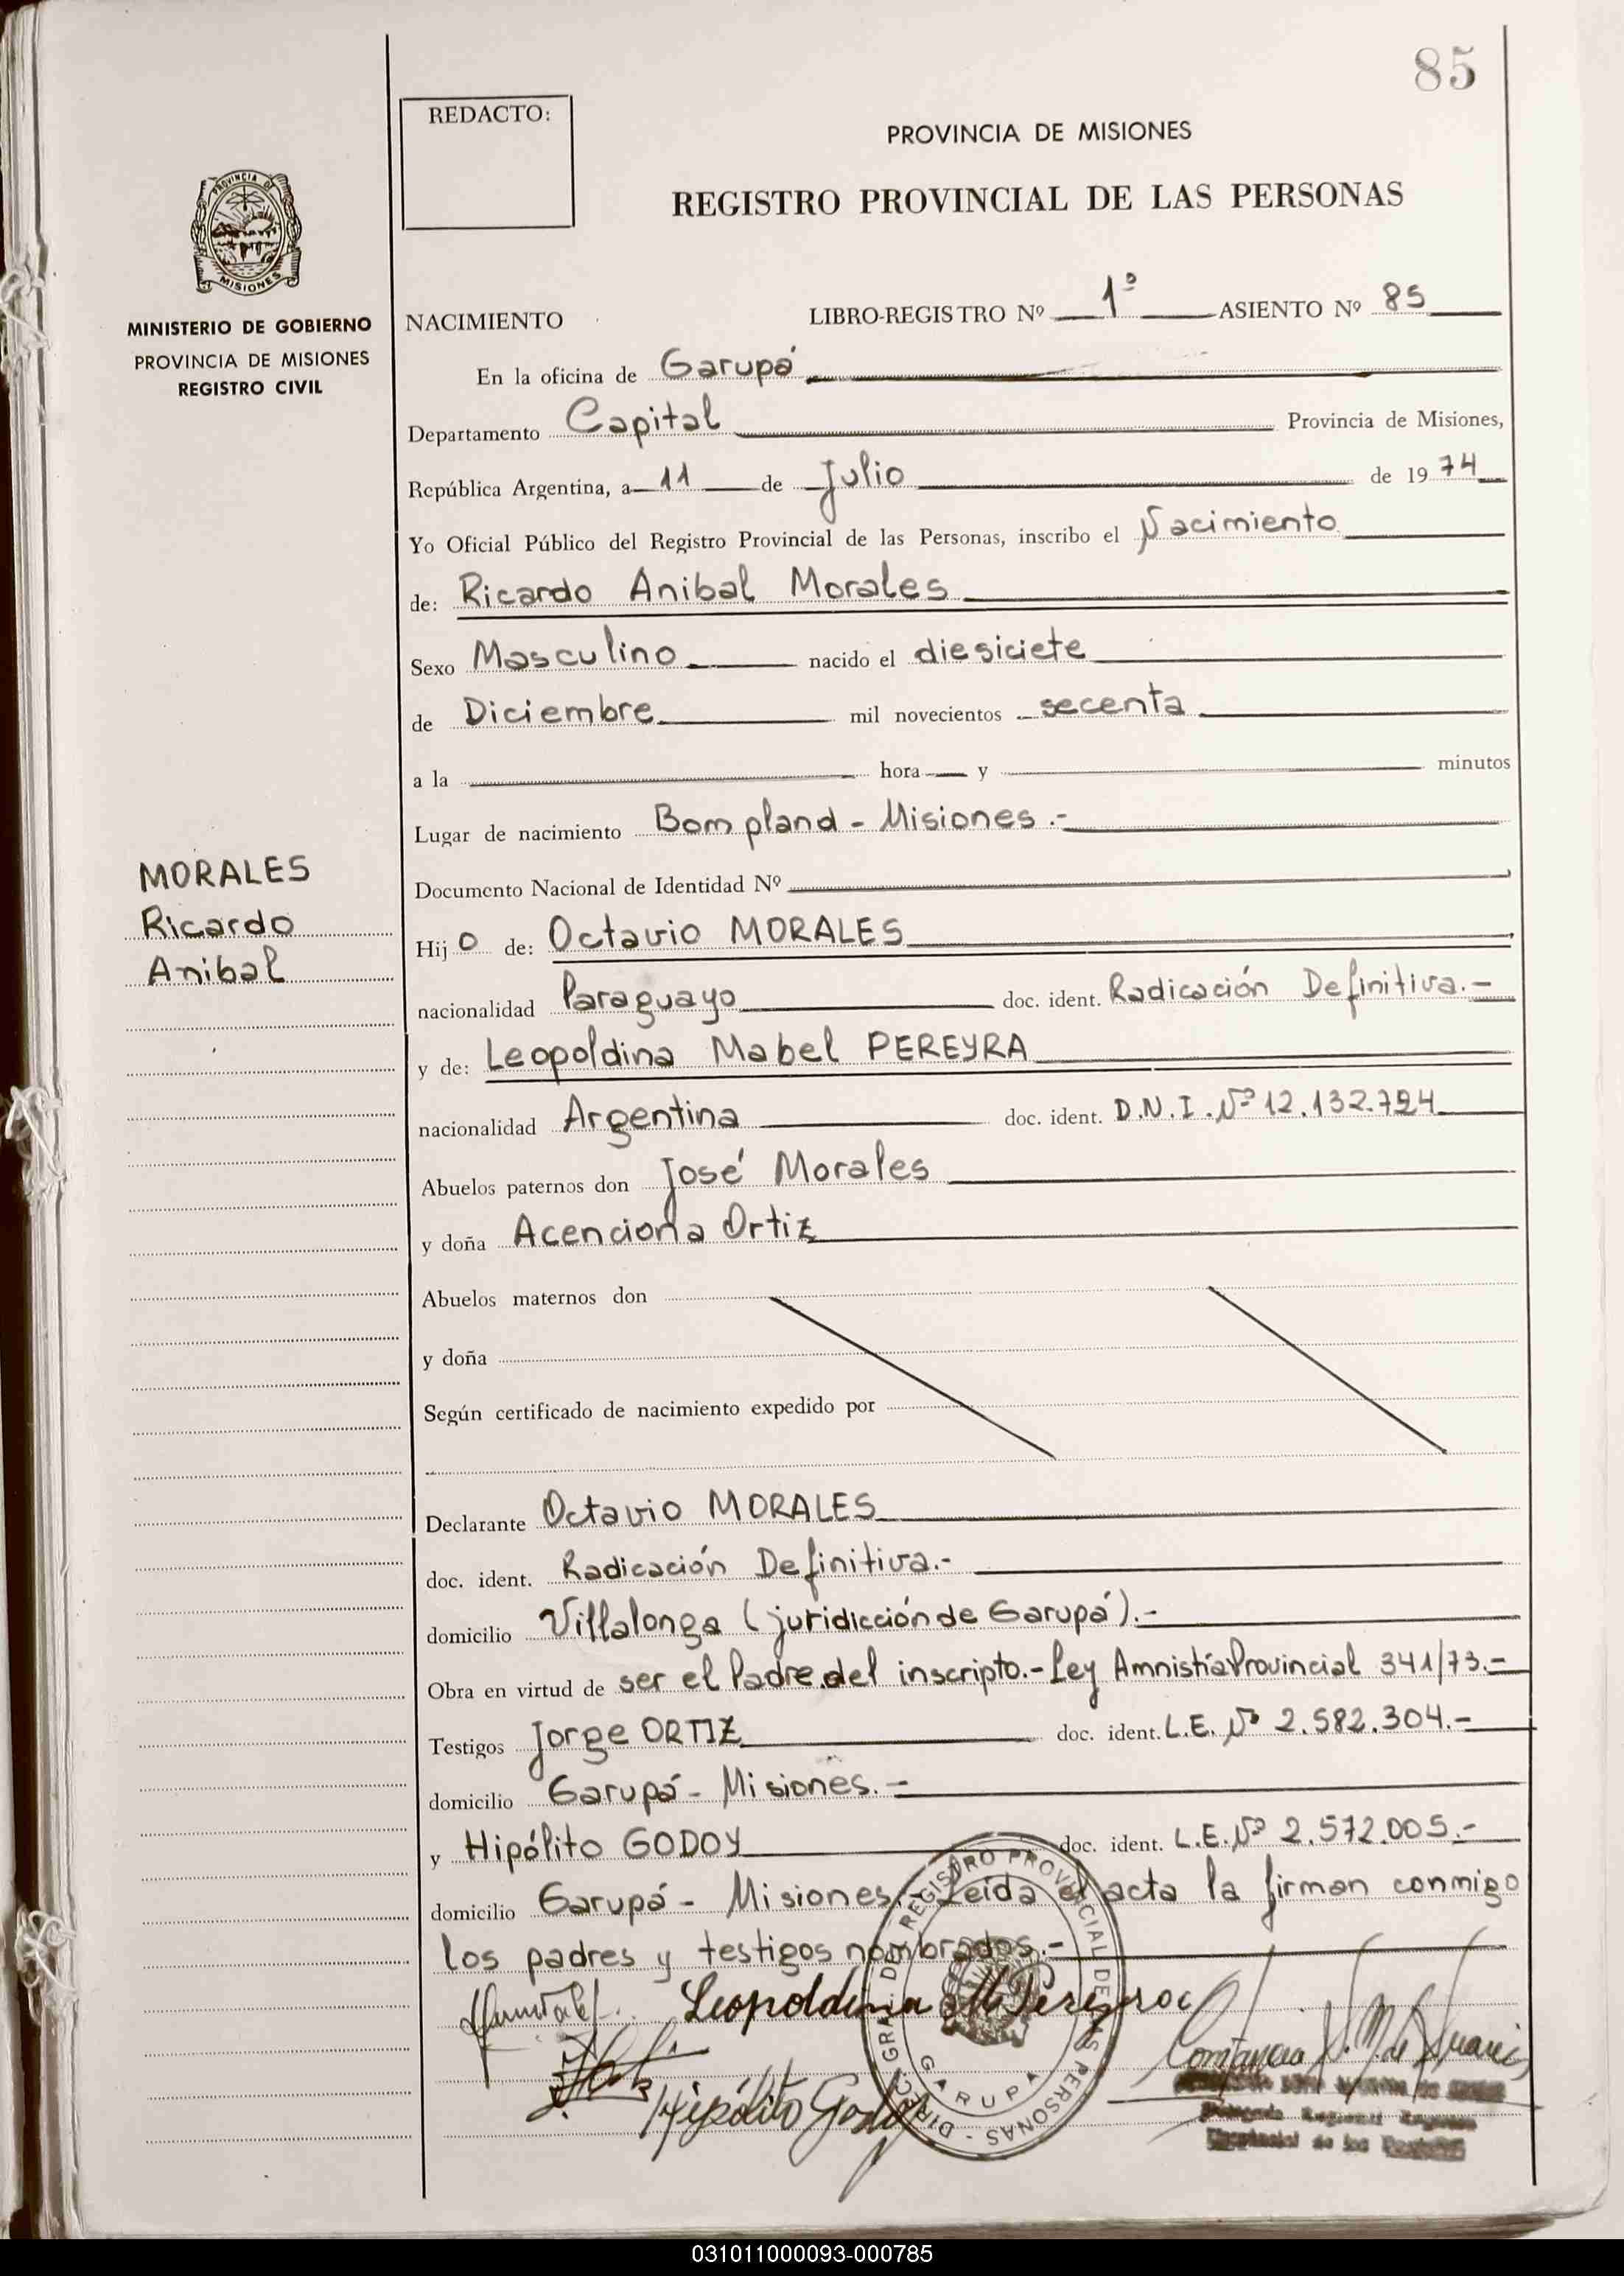 85
REDACTO:
PROVINCIA DE MISIONES
REGISTRO PROVINCIAL DE LAS PERSONAS
PROVINCIA DE
MISIONES
MINISTERIO DE GOBIERNO
PROVINCIA DE MISIONES
REGISTRO CIVIL
NACIMIENTO LIBRO-REGISTRO Nº 1º ASIENTO Nº 85
En la oficina de Garupá
Departamento Capital Provincia de Misiones,
República Argentina, a 11 de Julio de 1974
Yo Oficial Público del Registro Provincial de las Personas, inscribo el Nacimiento
de: Ricardo Anibal Morales
Sexo Masculino nacido el diesiciete
de Diciembre mil novecientos secenta
a la hora y minutos
Lugar de nacimiento Bompland - Misiones.-
Documento Nacional de Identidad Nº
MORALES
Ricardo
Anibal
Hijo de: Octavio MORALES
nacionalidad Paraguayo doc. ident. Radicación Definitiva.-
y de: Leopoldina Mabel PEREYRA
nacionalidad Argentina doc. ident. D.N.I. Nº 12.132.724
Abuelos paternos don José Morales
y doña Acenciona Ortiz
Abuelos maternos don
y doña
Según certificado de nacimiento expedido por
Declarante Octavio MORALES
doc. ident. Radicación Definitiva.-
domicilio Villalonga (juridicción de Garupá).-
Obra en virtud de ser el Padre del inscripto.- Ley Amnistía Provincial 341/73.-
Testigos Jorge ORTIZ doc. ident. L.E. Nº 2.582.304.-
domicilio Garupá - Misiones.-
y Hipólito GODOY doc. ident. L.E. Nº 2.572.005.-
domicilio Garupá - Misiones.- Leída el acta la firman conmigo
los padres y testigos nombrados.-
Leopoldina M Pereyra
Hipólito Godoy
DIREC. GRAL. DEL REGISTRO PROVINCIAL DE LAS PERSONAS -
GARUPA
031011000093-000785